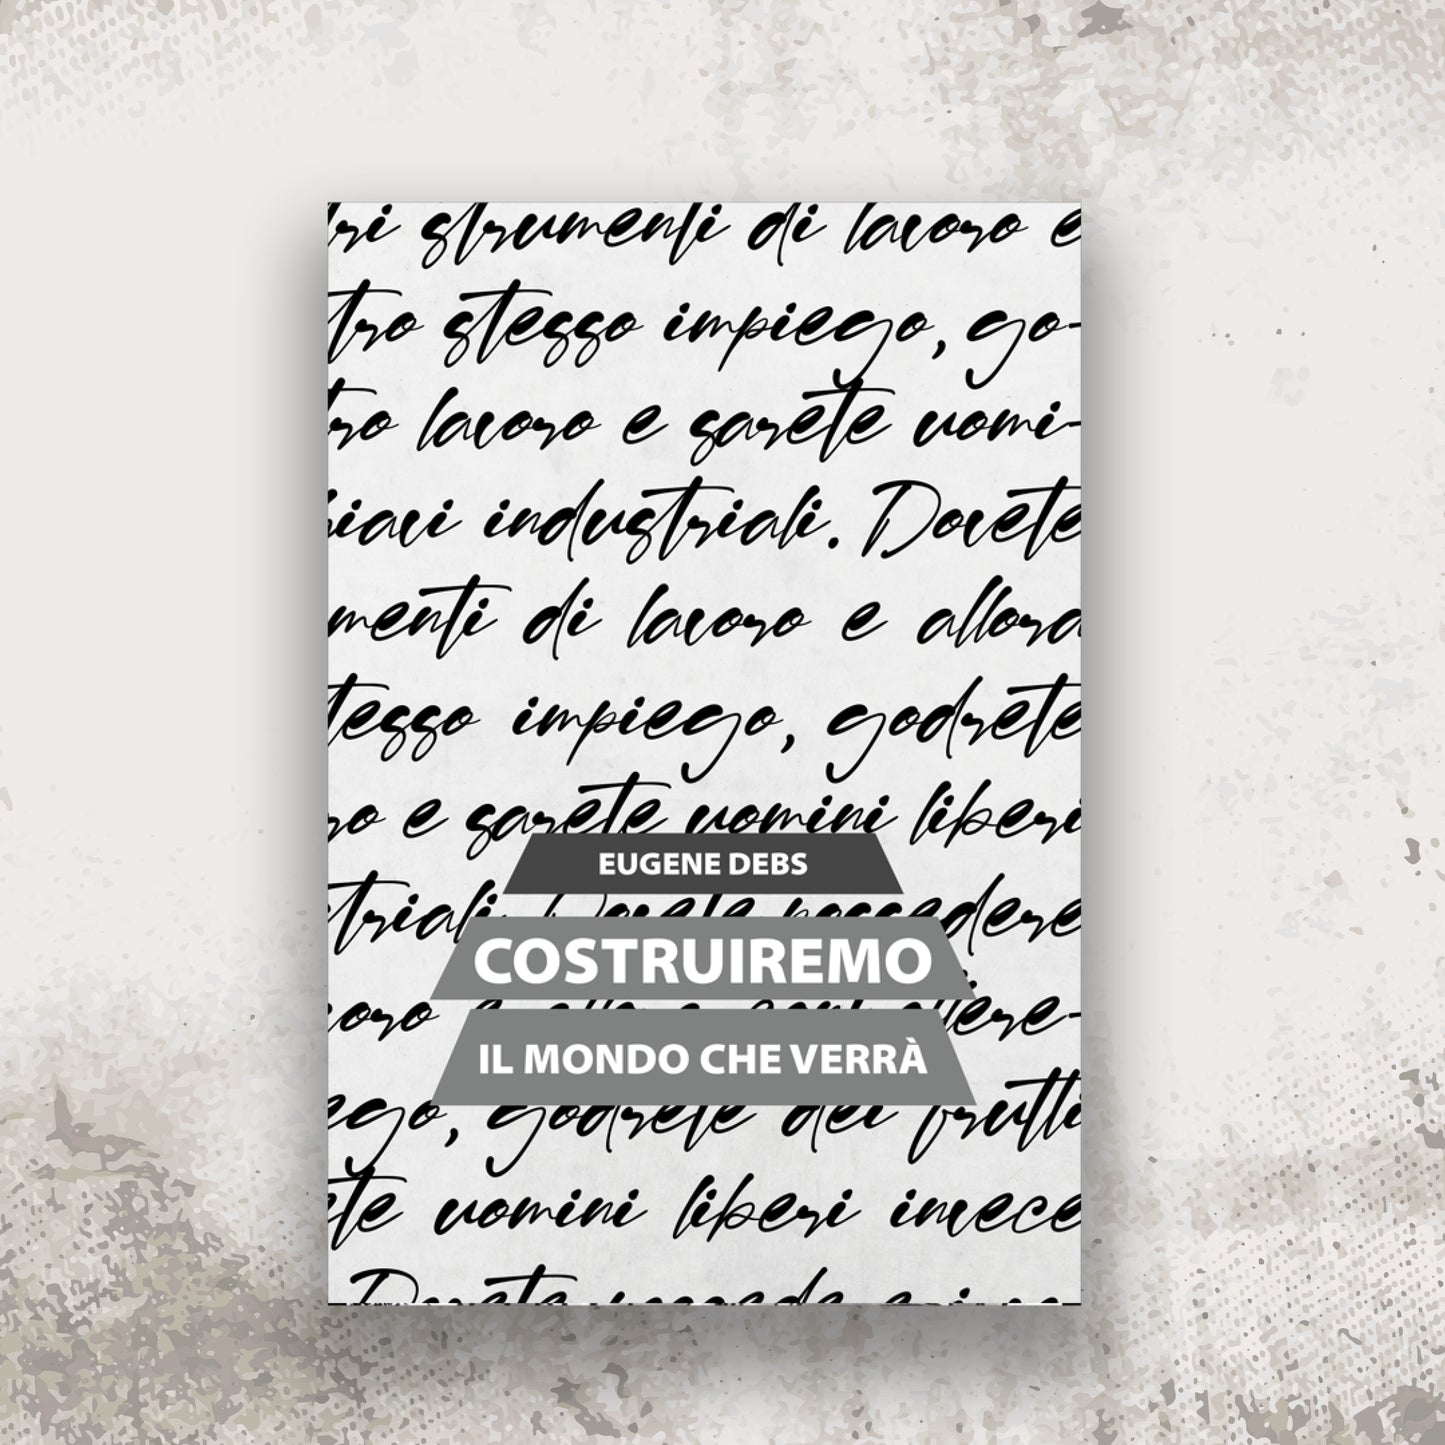 tri strumenti di lavoro e
tro stesso impiego, go-
tro lavoro e sarete uomi-
hiavi industriali. Dovete
menti di lavoro e allora
tesso impiego, godrete
ro e sarete uomini liberi
EUGENE DEBS
triali. Dovete possedere
COSTRUIREMO
voro e
IL MONDO CHE VERRÀ
ego, godrete dei frutti
ete uomini liberi invece
Dovete